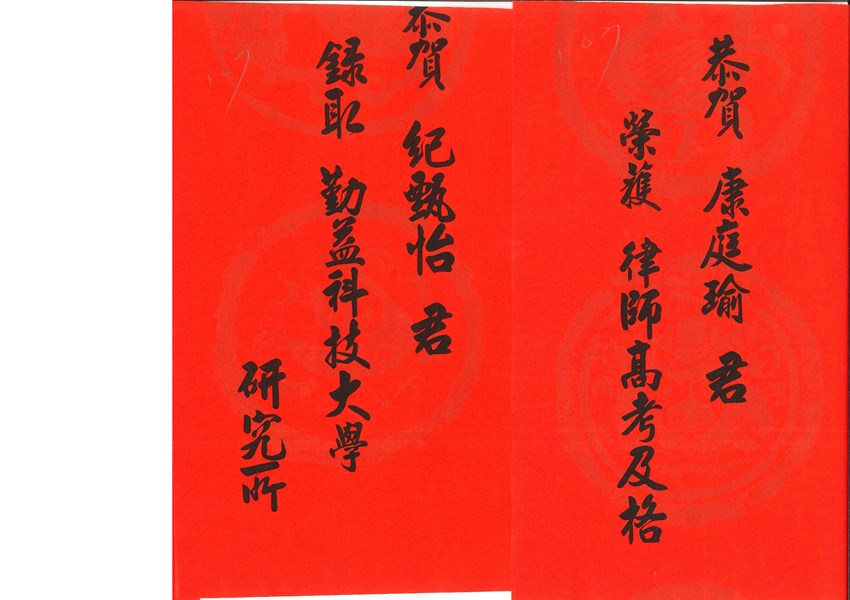 恭賀 康庭瑜 君
榮獲 律師高考及格
恭賀 紀甄怡 君
錄取 勤益科技大學
研究所